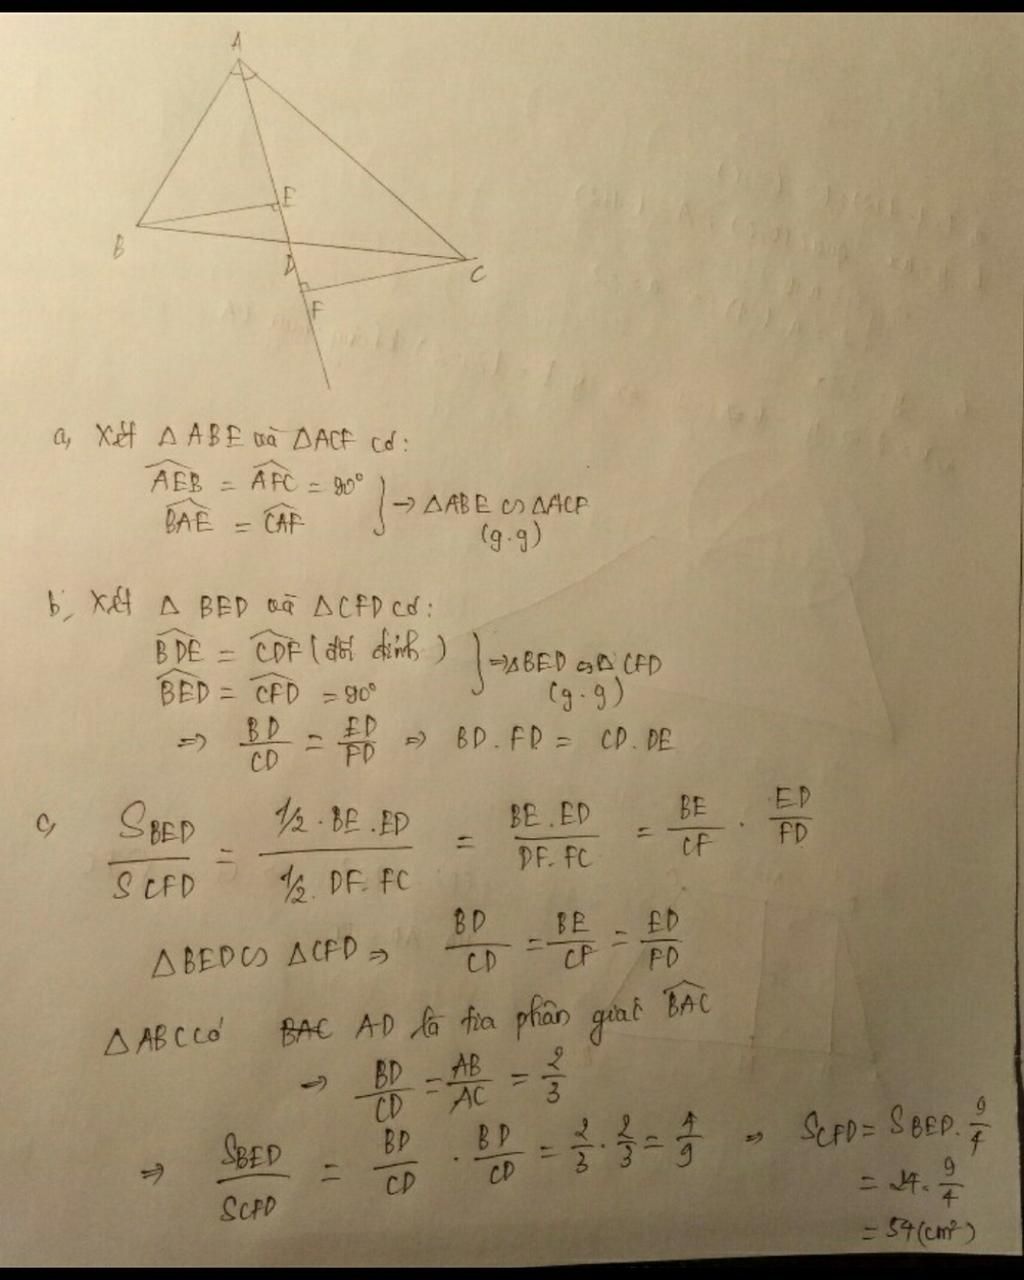 A
E
B
D
C
F
a, Xét △ABE và △ACF có:
$\widehat{AEB} = \widehat{AFC} = 90°$
$\widehat{BAE} = \widehat{CAF}$
} → △ABE ∽ △ACF
(g.g)
b, Xét △ BED và △CFD có:
$\widehat{BDE} = \widehat{CDF}$ (đối đỉnh)
$\widehat{BED} = \widehat{CFD} = 90°$
} ⇒ △BED ∽ △ CFD
(g.g)
⇒ $\frac{BD}{CD} = \frac{ED}{FD}$ ⇒ BD.FD = CD.DE
c, $\frac{S_{BED}}{S_{CFD}} = \frac{1/2 . BE . ED}{1/2 . DF . FC} = \frac{BE . ED}{DF . FC} = \frac{BE}{CF} . \frac{ED}{FD}$
△BED ∽ △CFD ⇒ $\frac{BD}{CD} = \frac{BE}{CF} = \frac{ED}{FD}$
△ABC có ~~BAC~~ AD là tia phân giác $\widehat{BAC}$
⇒ $\frac{BD}{CD} = \frac{AB}{AC} = \frac{2}{3}$
⇒ $\frac{S_{BED}}{S_{CFD}} = \frac{BD}{CD} . \frac{BD}{CD} = \frac{2}{3} . \frac{2}{3} = \frac{4}{9}$ ⇒ $S_{CFD} = S_{BED} . \frac{9}{4}$
= 24 . $\frac{9}{4}$
= 54 (cm²)